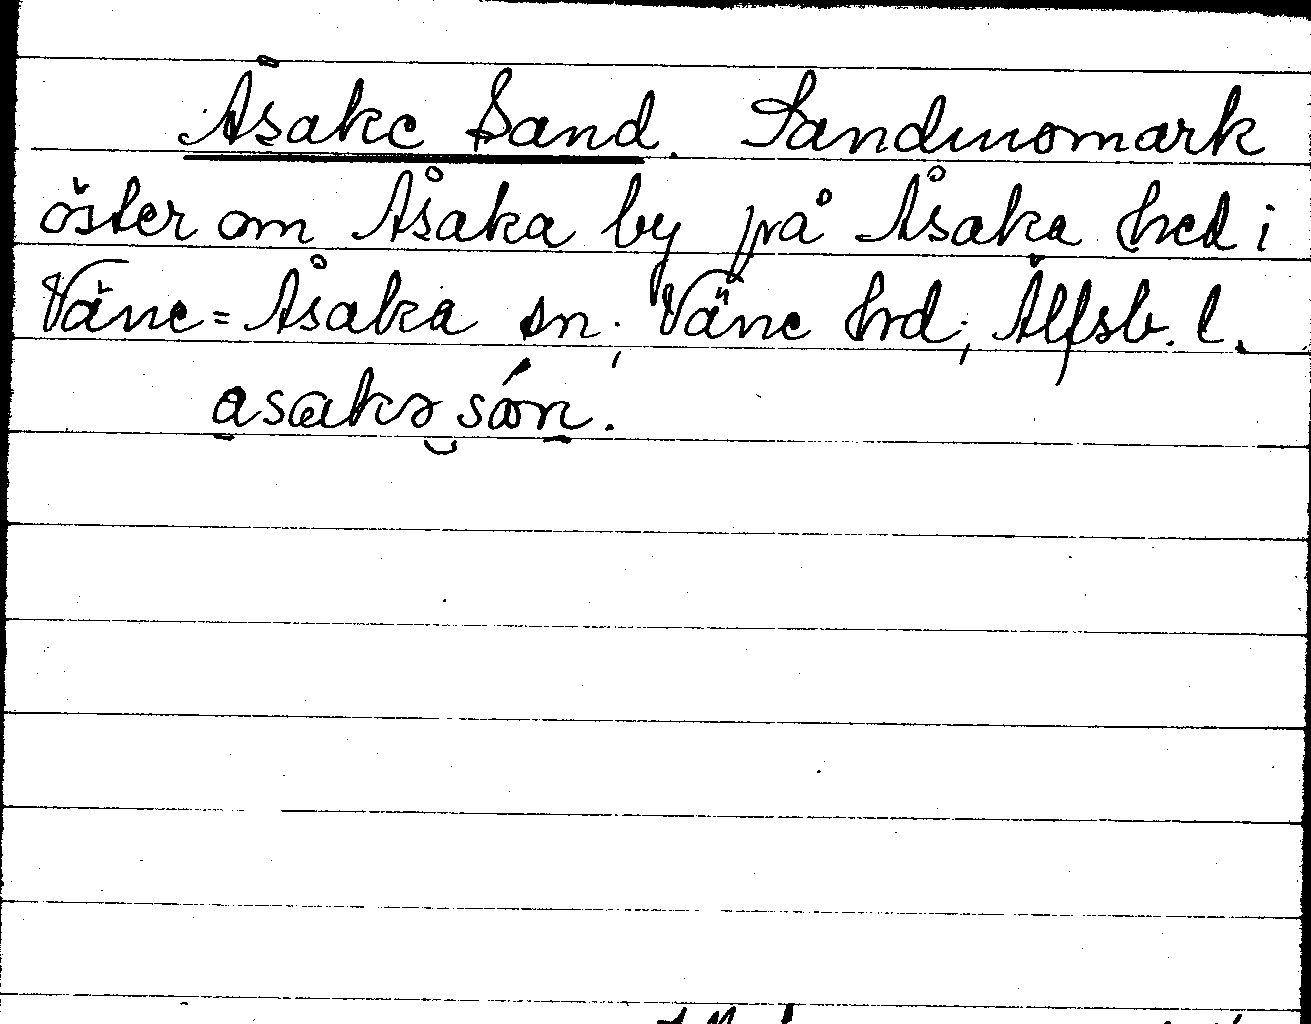 Åsake Sand. Sandmomark
öster om Åsaka by på Åsaka hed i
Väne=Åsaka sn; Väne hrd; Älfsb. l.